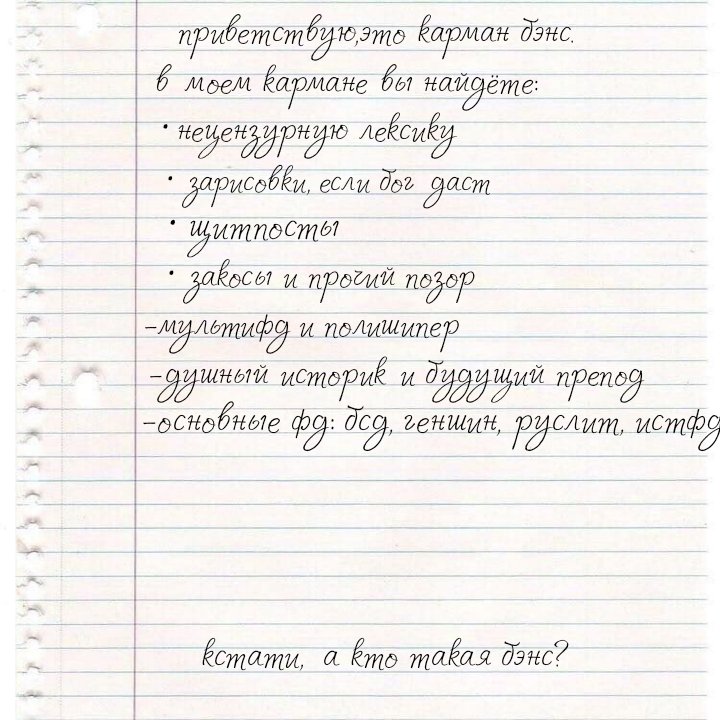 приветствую,это карман бэнс.
в моем кармане вы найдёте:
• нецензурную лексику
• зарисовки, если бог даст
• щитпосты
• закосы и прочий позор
-мультифд и полишипер
-душный историк и будущий препод
-основные фд: бсд, геншин, руслит, истфд
кстати, а кто такая бэнс?